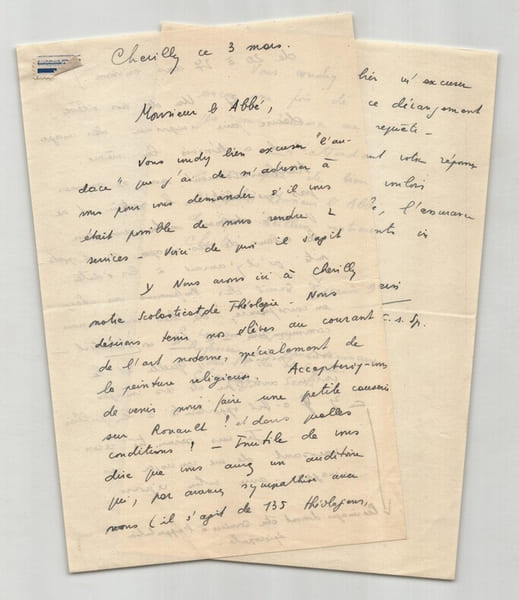 Cherilly ce 3 mars.
Monsieur l'Abbé,
Vous voudrez bien excuser "l'au-
dace" que j'ai de m'adresser à
vous pour vous demander s'il vous
était possible de nous rendre 2
services - Voici de quoi il s'agit
1) Nous avons ici à Cherilly
notre Scolasticat de Théologie - Nous
désirons tenir nos élèves au courant
de l'art moderne, spécialement de
la peinture religieuse. Accepteriez-vous
de venir nous faire une petite causerie
sur Rouault ! et dans quelles
conditions ! - Inutile de vous
dire que vous aurez un auditoire
qui, par avance, sympathise avec
vous (il s'agit de 135 théologiens,
bien m'excuser
ce dérangement
requête -
votre réponse
voulois
l'assurance
C. S. Sp.